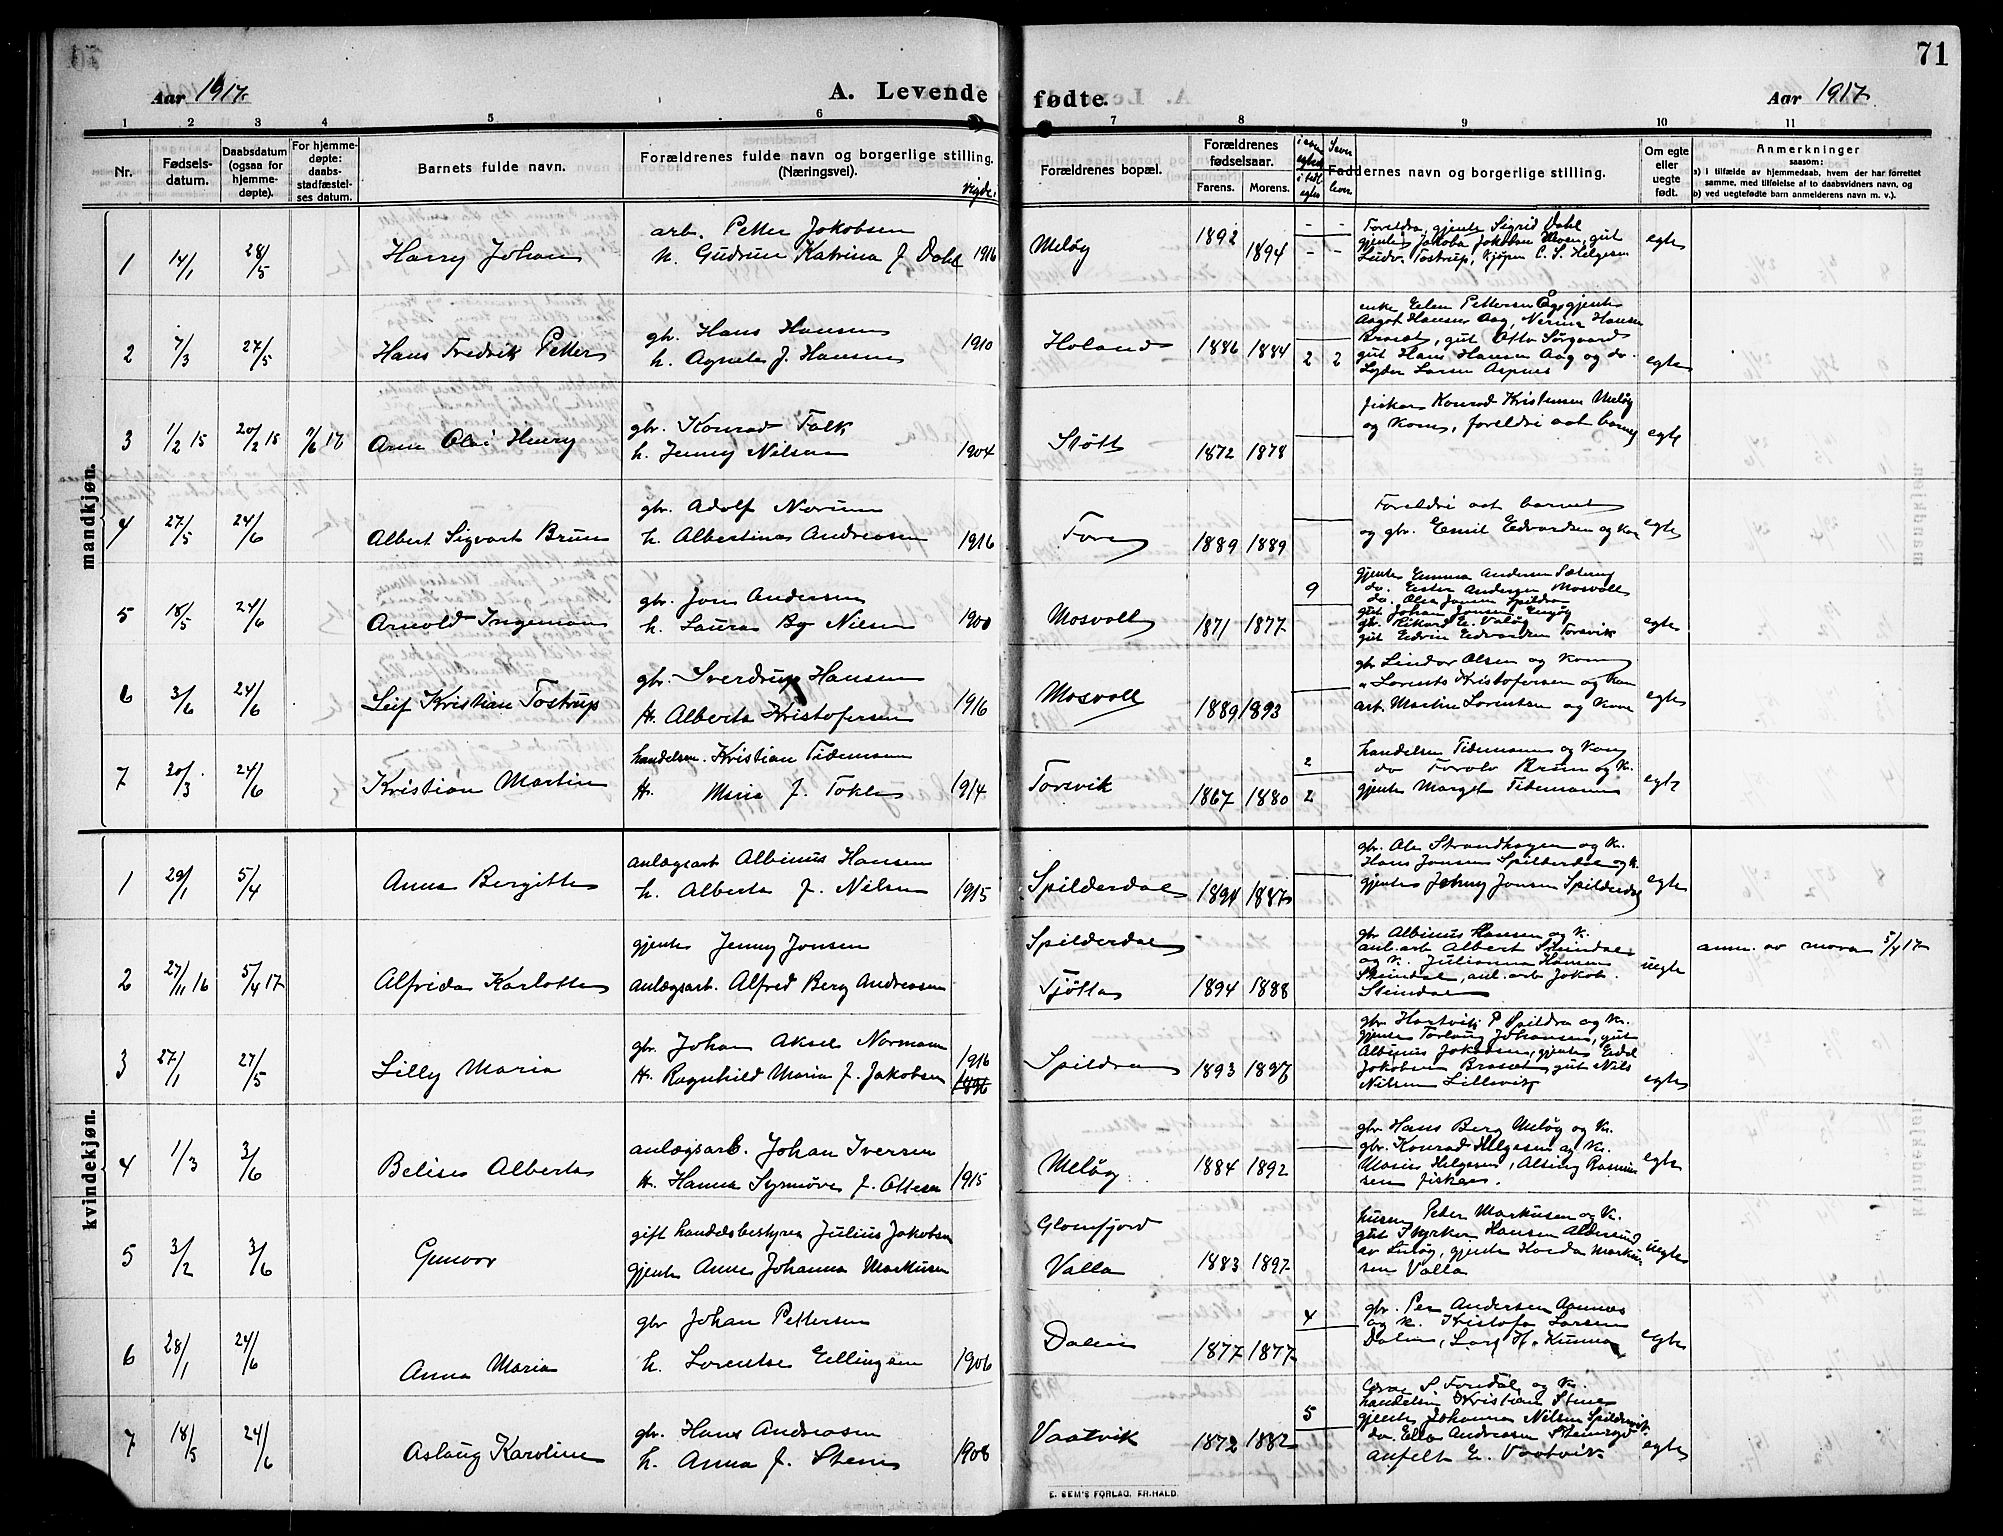 71
Aar 1917.
A. Levende fødte.
Aar 1917
1 2 3 4 5 6 7 8 9 10 11
Nr.
Fødsels-
datum.
Daabsdatum
(ogsaa for
hjemme-
døpte).
For hjemme-
døpte:
daabs-
stadfæstel-
ses datum.
Barnets fulde navn.
Forældrenes fulde navn og borgerlige stilling.
(Næringsvei).
Vigde.
Forældrenes bopæl.
Forældrenes
fødselsaar.
Farens. Morens.
Faddernes navn og borgerlige stilling.
Om egte
eller
uegte
født.
Anmerkninger
saasom:
a) i tilfælde av hjemmedaab, hvem der har forrettet
samme, med tilføielse af to daabsvidners navn, og
b) ved uegtefødte barn anmelderens navn m. v.).
mandkjøn.
1 14/1 28/5 Harry Johan
arb. Petter Jakobsen
h. Gudrun Katrina f. Dahl 1916
Meløy 1892 1894
Foreldra, gjente Sigrid Dahl
gjente Jakoba Jakobsen, gut
Ludv. Tostrup, kjøpm C. S. Helgesen
egte
2 7/3 27/5 Hans Fredrik Petter
gbr. Hans Hansen
h. Agnete J. Hansen 1910
Holand 1886 1884 2 2
enke Elen Pettersen Åg, gjente
Aagot Hansen Aag, Hansen
gut Otto Sørgaard
gut Hans Hansen Aag og do.
Larsen Aspnes
egte
3 1/2 15 20/2 15 /6 17 Arne Olai Henry
gbr. Konrad Falk
h. Jenny Nilsen 1904
Støtt 1872 1878
fisker Konrad Kristensen Meløy
og kona, foreldri aat barnet
egte
4 27/5 24/6 Albert Sigvart Brun
gbr. Adolf Norum
h. Albertine Andreasen 1916
Fore 1889 1889
Foreldri aat barnet
og gbr. Emil Edvardsen og kona
egte
5 18/5 24/6 Arnold Ingeman
gbr. Jon Andersen
h. Laura By Nilsen 1900
Mosvoll 1871 1877 9
gjente Emma Andersen Sætering
do. Ester Andersen Mosvoll
do. Olea Jonsen Spildra
gut Johan Jonsen Engøy
gbr. Rikard E. Valøy
gut Edvin Edvardsen Torsvik
egte
6 3/6 24/6 Leif Kristian Tostrup
gbr. Sverdrup Hansen
H. Alberta Kristofersen 1916
Mosvoll 1889 1893
gbr Lindor Olsen og kona
" Lorents Kristofersen og kona
arb. Martin Lorentsen og kona
egte
7 20/3 24/6 Kristian Martin
handelsm. Kristian Tidemann
H. Maria f. Tokle 1914
Torsvik 1867 1880 2 2
handelsm Tidemann og kona
do Torolv Brun og K.
gjente Marget Tidemann
egte
kvindekjøn.
1 29/1 5/4 Anna Bergitte
anlægsarb Albinus Hansen
h. Alberta f. Nilsen 1915
Spilderdal 1894 1887
gbr. Ole Strandhagen og K.
Hans Jonsen Spilderdal og K.
gjente Jenny Jonsen Spilderdal
egte
2 27/11 16 5/4 17 Alfrida Karlotte
gjente Jenny Jonsen
anlægsarb. Alfred Berg Andreasen
Spilderdal
Tjøtta 1894 1888
gbr Albinus Hansen og K.
anl. arb Albert Steindal
og K. Julianna Hansen
Steindal, anl. arb Jakob
Steindal
uegte
anm. av mora 5/4 17
3 27/1 27/5 Lilly Maria
gbr. Johan Aksel Normann 1916
H. Ragnhild Maria f. Jakobsen 1896
Spildra 1893 1896
gbr Hartvik P Spildra og K.
gjente Torlaug Johansen, gut
Albinus Jakobsen, gjente Edel
Jakobsen, gut Nils
Nilsen Lillevik
egte
4 1/3 3/6 Belise Alberta
anlægsarb. Johan Iversen
H. Hanna Synnøve f. Ottesen 1915
Meløy 1884 1892
gbr. Hans Berg Meløy og K.
gbr. Konrad Helgesen og K.
Marius Helgesen, Rasmus-
sen fisker.
egte
5 3/2 3/6 Gunvor
gift handelsbestyrer Julius Jakobsen
gjente Anne Johanna Markusen
Glomfjord
Valla 1883 1897
husm Peter Markusen og K.
gut Styrker Hansen Aldersund
av Lurøy, gjente Hovda Marku-
sen Valla
uegte
6 28/1 24/6 Anna Maria
gbr Johan Pettersen
h. Lorentse Ellingsen 1906
Dalen 1877 1877 4
gbr. Per Andersen Aamnes
og K. Kristofa Larsen
Dalen, Lars H. Kunna
egte
7 18/5 24/6 Aslaug Karoline
gbr. Hans Andreasen
h. Anna f. Stene 1908
Vaatvik 1872 1882 5
S. Foredal og K.
handelsm Kristian Stene
gjente Johanna Nilsen Spildervik
do. Ella Andreasen
Anfelt E. Vaatvik
egte
E. SEM'S FORLAG, FR.HALD.